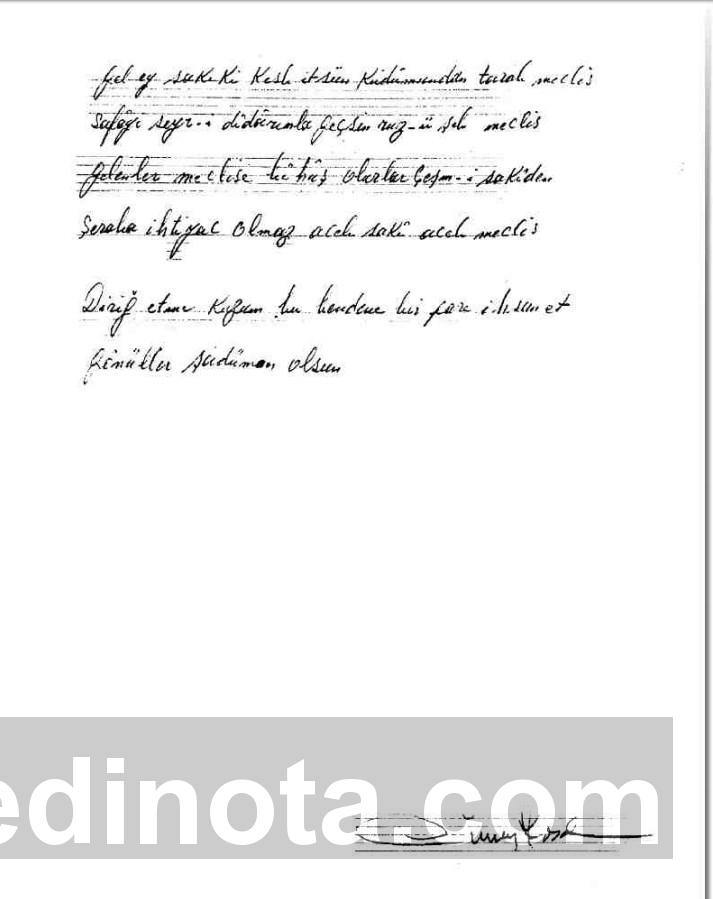 gel ey saki ki kesb itsün kudümundan tarab meclis
Safâyı seyr-i didârınla geçsin ruz-ü şeb meclis
gelenler meclise bîhûş olurlar çeşm-i sakiden
Şeraba ihtiyac olmaz aceb sakî aceb meclis
Diriğ etme kuzum bu bendene bir pare ihsan et
gönüller şadüman olsun
edinota.com